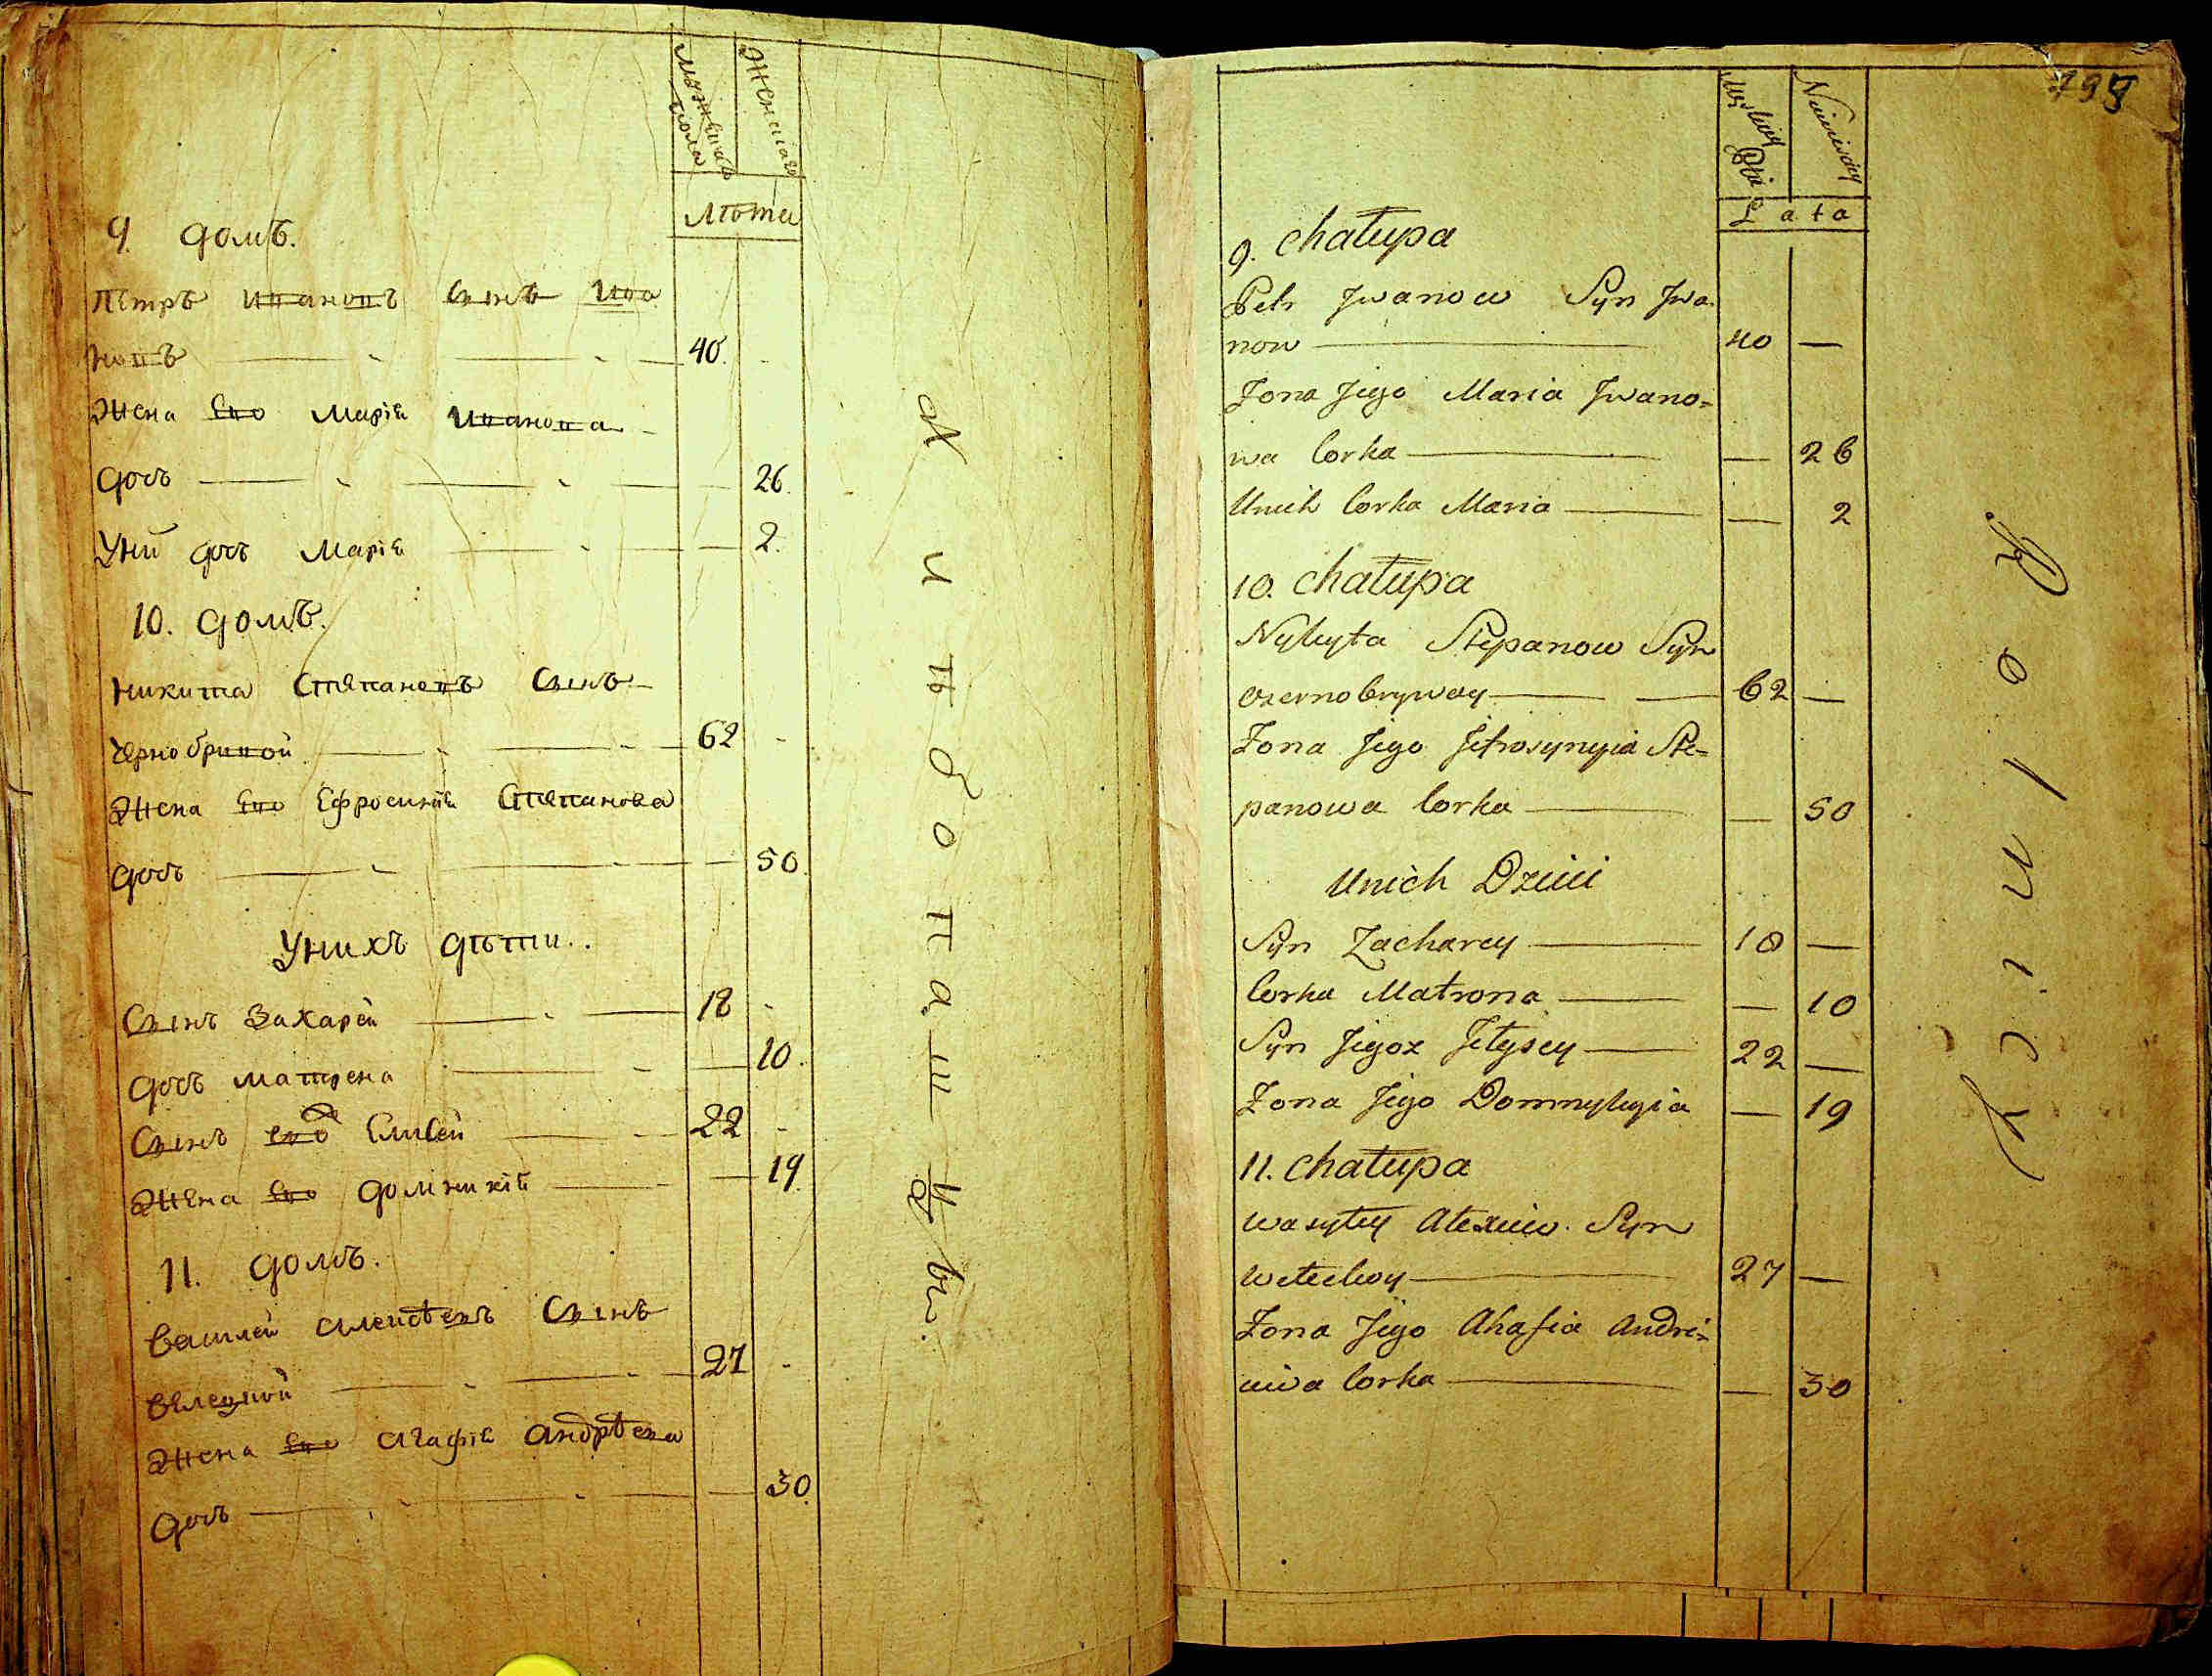 Мужеска пола
Женска
Лѣта
9. домъ.
Петръ Ивановъ сынъ Ива
новъ 40.
Жена его Марія Иванова
дочь 26.
У них дочь Марія 2.
10. домъ.
Никита Степановъ сынъ
Чернобривой 62
Жена его Ефросинія Степанова
дочь 50
У нихъ дѣти.
Сынъ Захарей 18
дочь Матрена 10.
Сынъ его Елисей 22
Жена его Домникія 19.
11. домъ.
Василей Алексѣевъ сынъ
27
Жена его Агафія Андрѣева
дочь 30.
Жинбопашцы.
199
Męskiey Płci
Niewieściey
Lata
9. Chałupa
Petr Jwanow Syn Jwa-
now 40 —
Żona Jego Maria Jwano=
wa Corka — 26
Unich Corka Maria — 2
10. Chałupa
Nykyta Stepanow Syn
Czernobrywoy 62 —
Żona Jego Jefrosynyia Ste=
panowa Corka — 50
Unich Dzieci
Syn Zacharey 18 —
Corka Matrona — 10
Syn Jegoz Jełysey 22 —
Żona Jego Domnykyia — 19
11. Chałupa
Wasyłey Alexiiw Syn
27 —
Żona Jego Ahafia Andri-
iwa Corka — 30
Rolnicy